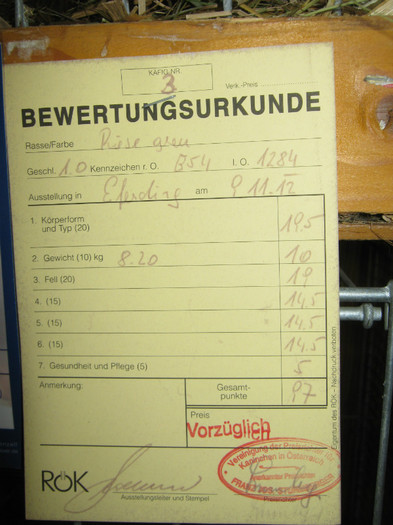 KÄFIG NR.
3
Verk.-Preis
BEWERTUNGSURKUNDE
Rasse/Farbe Riese grau
Geschl. 1.0 Kennzeichen r. O. B54 l. O. 1284
Ausstellung in Eferding am 9.11.12
1. Körperform und Typ (20) 19,5
2. Gewicht (10) kg 8.20 10
3. Fell (20) 19
4. (15) 14,5
5. (15) 14,5
6. (15) 14,5
7. Gesundheit und Pflege (5) 5
Anmerkung: Gesamtpunkte 97
Preis
Vorzüglich
RÖK
Ausstellungsleiter und Stempel
Vereinigung der Preisrichter
Kaninchen in Österreich
Eigentum des RÖK – Nachdruck verboten